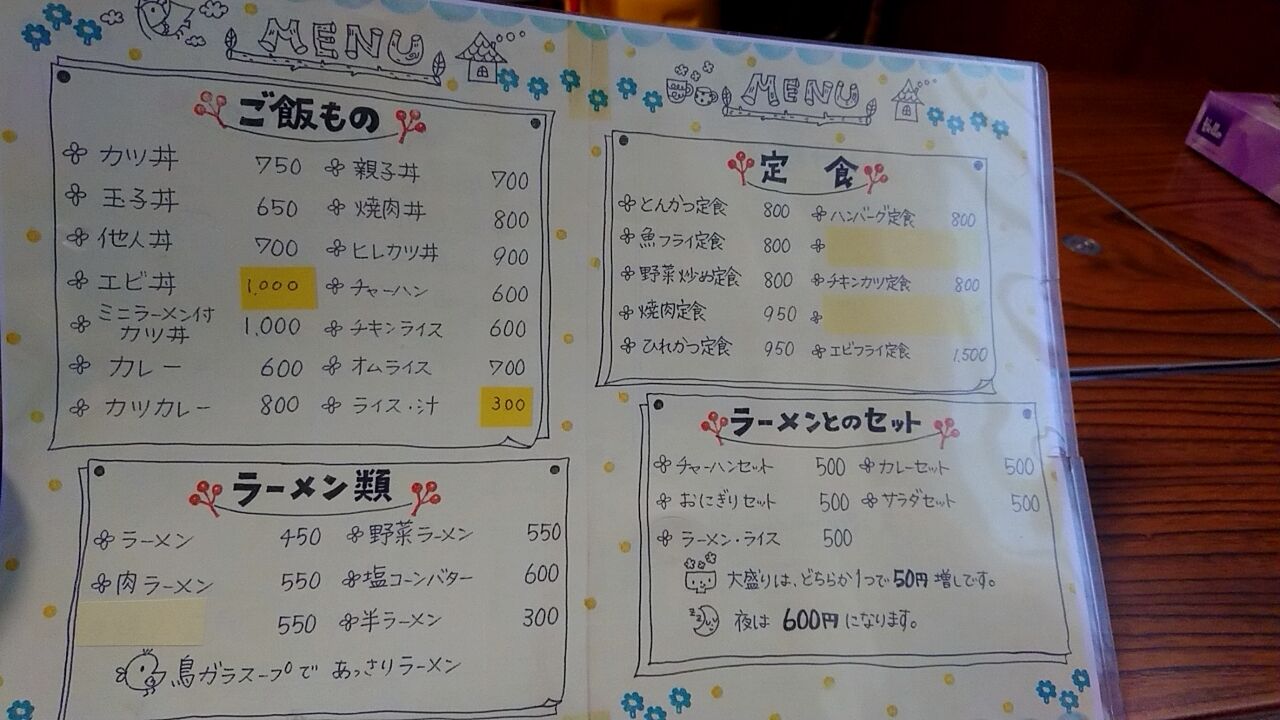 MENU
ご飯もの
カツ丼 750
玉子丼 650
他人丼 700
エビ丼 1,000
ミニラーメン付
カツ丼 1,000
カレー 600
カツカレー 800
親子丼 700
焼肉丼 800
ヒレカツ丼 900
チャーハン 600
チキンライス 600
オムライス 700
ライス・汁 300
ラーメン類
ラーメン 450
肉ラーメン 550
550
野菜ラーメン 550
塩コーンバター 600
半ラーメン 300
鳥ガラスープで あっさりラーメン
MENU
定食
とんかつ定食 800
魚フライ定食 800
野菜炒め定食 800
焼肉定食 950
ひれかつ定食 950
ハンバーグ定食 800
チキンカツ定食 800
エビフライ定食 1,500
ラーメンとのセット
チャーハンセット 500
おにぎりセット 500
ラーメン・ライス 500
カレーセット 500
サラダセット 500
大盛りは、どちらか1つで50円増しです。
夜は 600円になります。